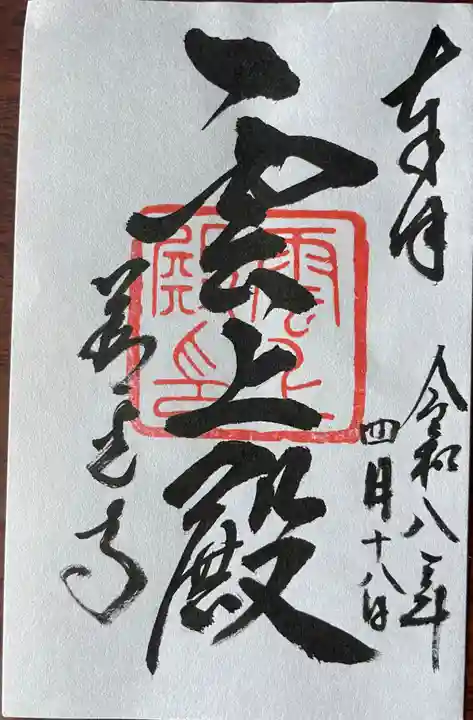 奉拝
令和八年
四月十八日
雲上殿
善光寺